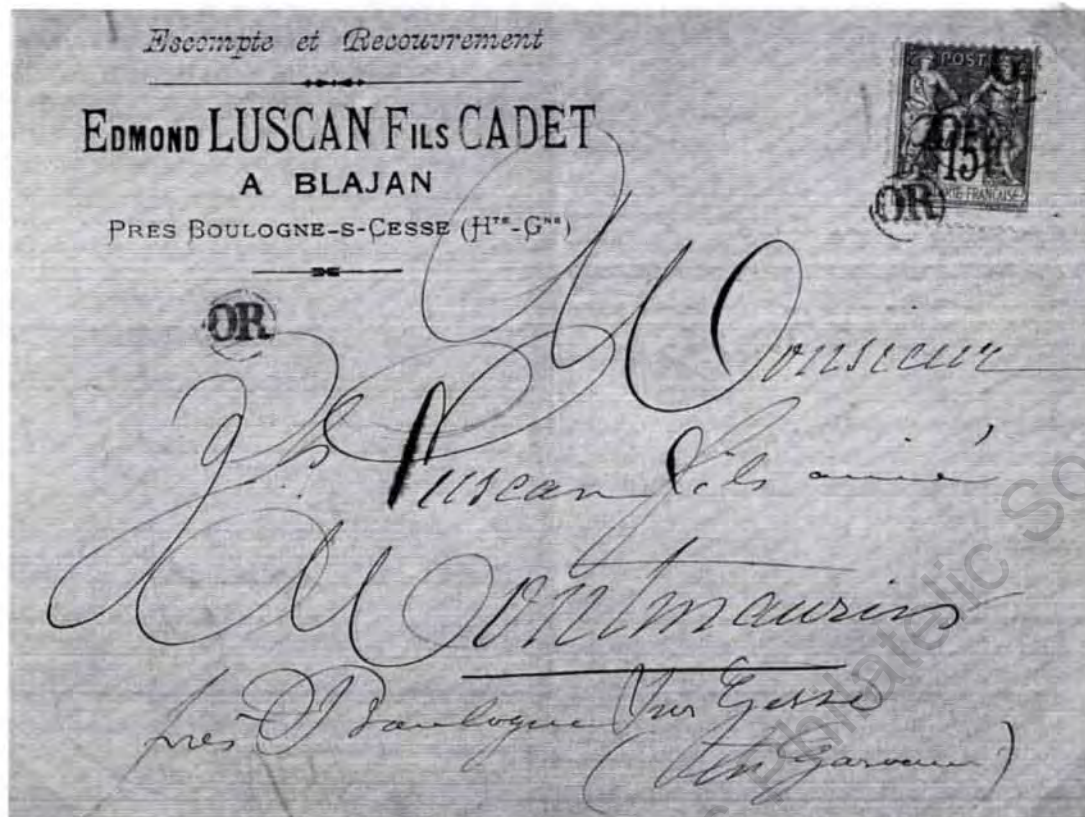 Escompte et Recouvrement
EDMOND LUSCAN FILS CADET
A BLAJAN
PRES BOULOGNE-S-GESSE (Hte-Gne)
POST
15
OR
OR
Monsieur
Jh Luscan fils ainé
Montmaurin
près Boulogne sur Gesse
(Hte Garonne)
Philatelic So